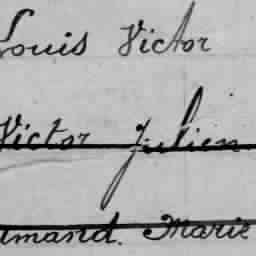 Louis Victor
Victor Julien
amand. Marie